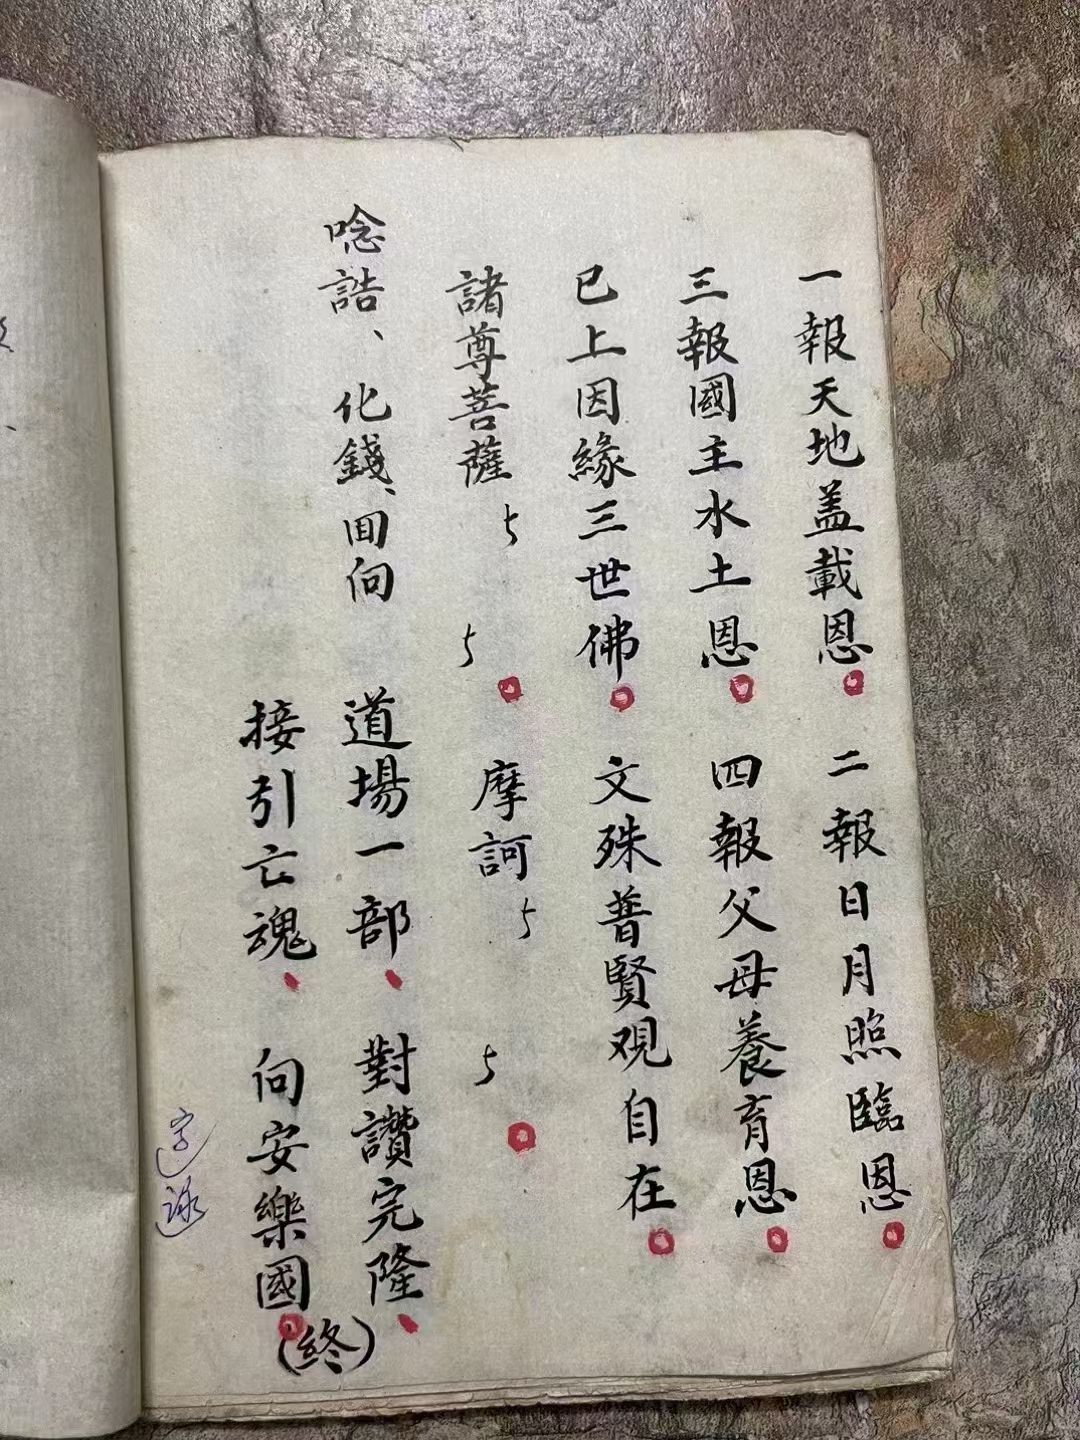 一報天地盖載恩 二報日月照臨恩
三報國主水土恩 四報父母養育恩
已上因緣三世佛 文殊普賢观自在
諸尊菩薩 摩訶
唸誥、化錢、回向 道場一部、對讚完隆、
接引亡魂、向安樂國
(終)